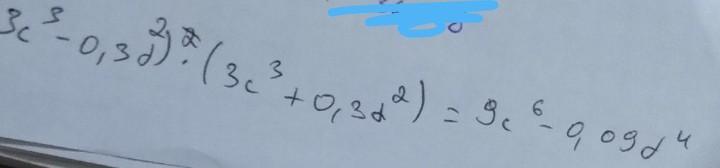 3c³ - 0,3d²) · (3c³ + 0,3d²) = 9c⁶ - 0,09d⁴